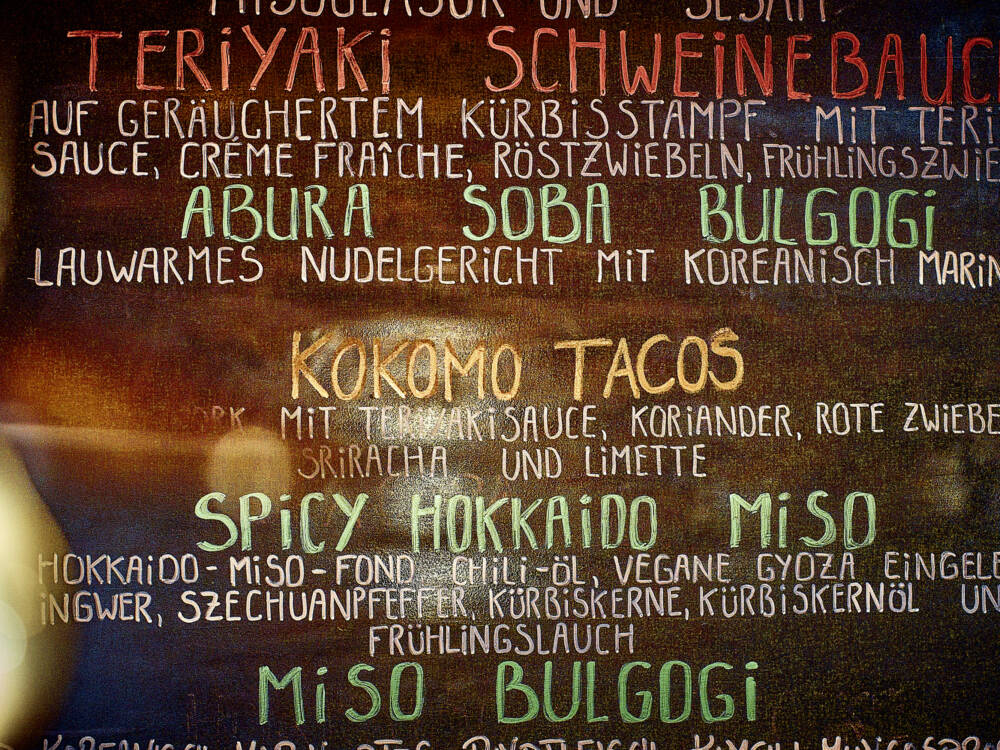 UND SESAM
TERIYAKI SCHWEINEBAUC
AUF GERÄUCHERTEM KÜRBISSTAMPF MIT TERI
SAUCE, CRÉME FRAÎCHE, RÖSTZWIEBELN, FRÜHLINGSZWIE
ABURA SOBA BULGOGI
LAUWARMES NUDELGERICHT MIT KOREANISCH MARIN
KOKOMO TACOS
MIT TERIYAKISAUCE, KORIANDER, ROTE ZWIEBE
SRIRACHA UND LIMETTE
SPICY HOKKAIDO MISO
HOKKAIDO-MISO-FOND CHILI-ÖL, VEGANE GYOZA EINGELE
INGWER, SZECHUANPFEFFER, KÜRBISKERNE, KÜRBISKERNÖL UN
FRÜHLINGSLAUCH
MISO BULGOGI